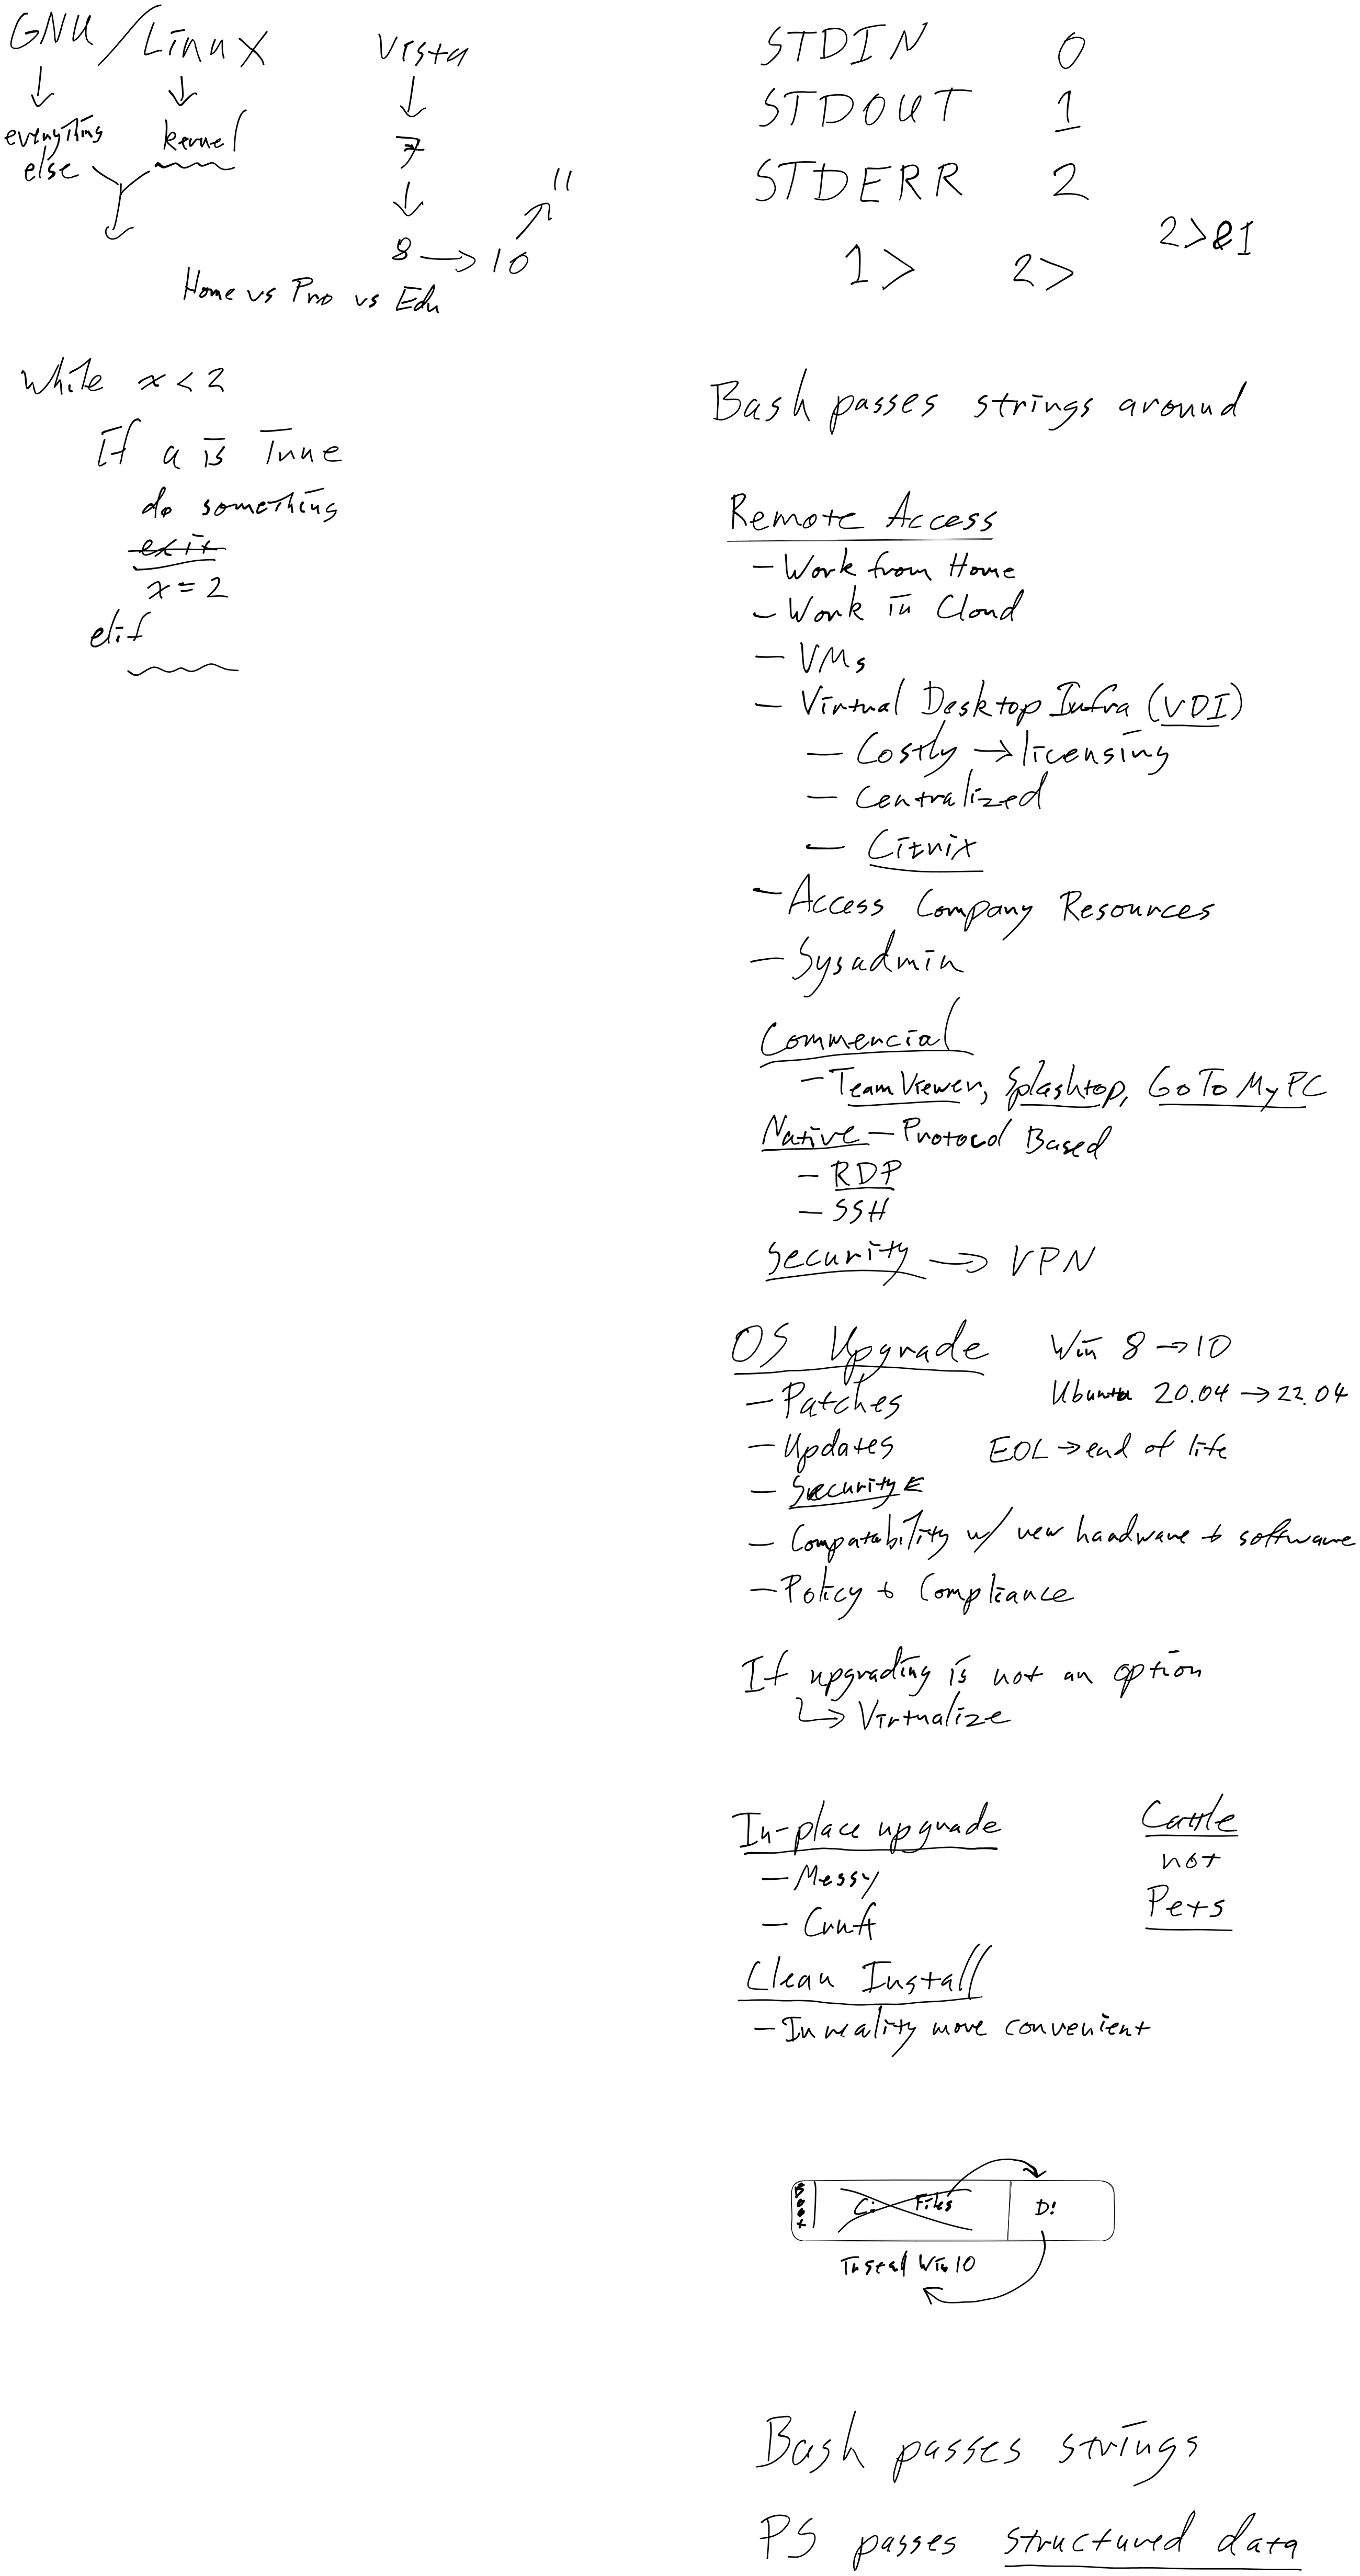 GNU/Linux
everything else
kernel
Vista
7
8 → 10
11
Home vs Pro vs Edu
While x < 2
If a is True
do something
exit
x = 2
elif
STDIN 0
STDOUT 1
STDERR 2
1> 2> 2>&1
Bash passes strings around
Remote Access
- Work from Home
- Work in Cloud
- VMs
- Virtual Desktop Infra (VDI)
- Costly → licensing
- Centralized
- Citrix
- Access Company Resources
- Sysadmin
Commercial
- TeamViewer, Splashtop, GoToMyPC
Native - Protocol Based
- RDP
- SSH
Security → VPN
OS Upgrade Win 8 → 10
- Patches Ubuntu 20.04 → 22.04
- Updates EOL → end of life
- Security ←
- Compatability w/ new hardware + software
- Policy + Compliance
If upgrading is not an option
↳ Virtualize
In-place upgrade
- Messy
- Cruft
Cattle
not
Pets
Clean Install
- In reality more convenient
Boot C: Files D:
Install Win 10
Bash passes strings
PS passes structured data